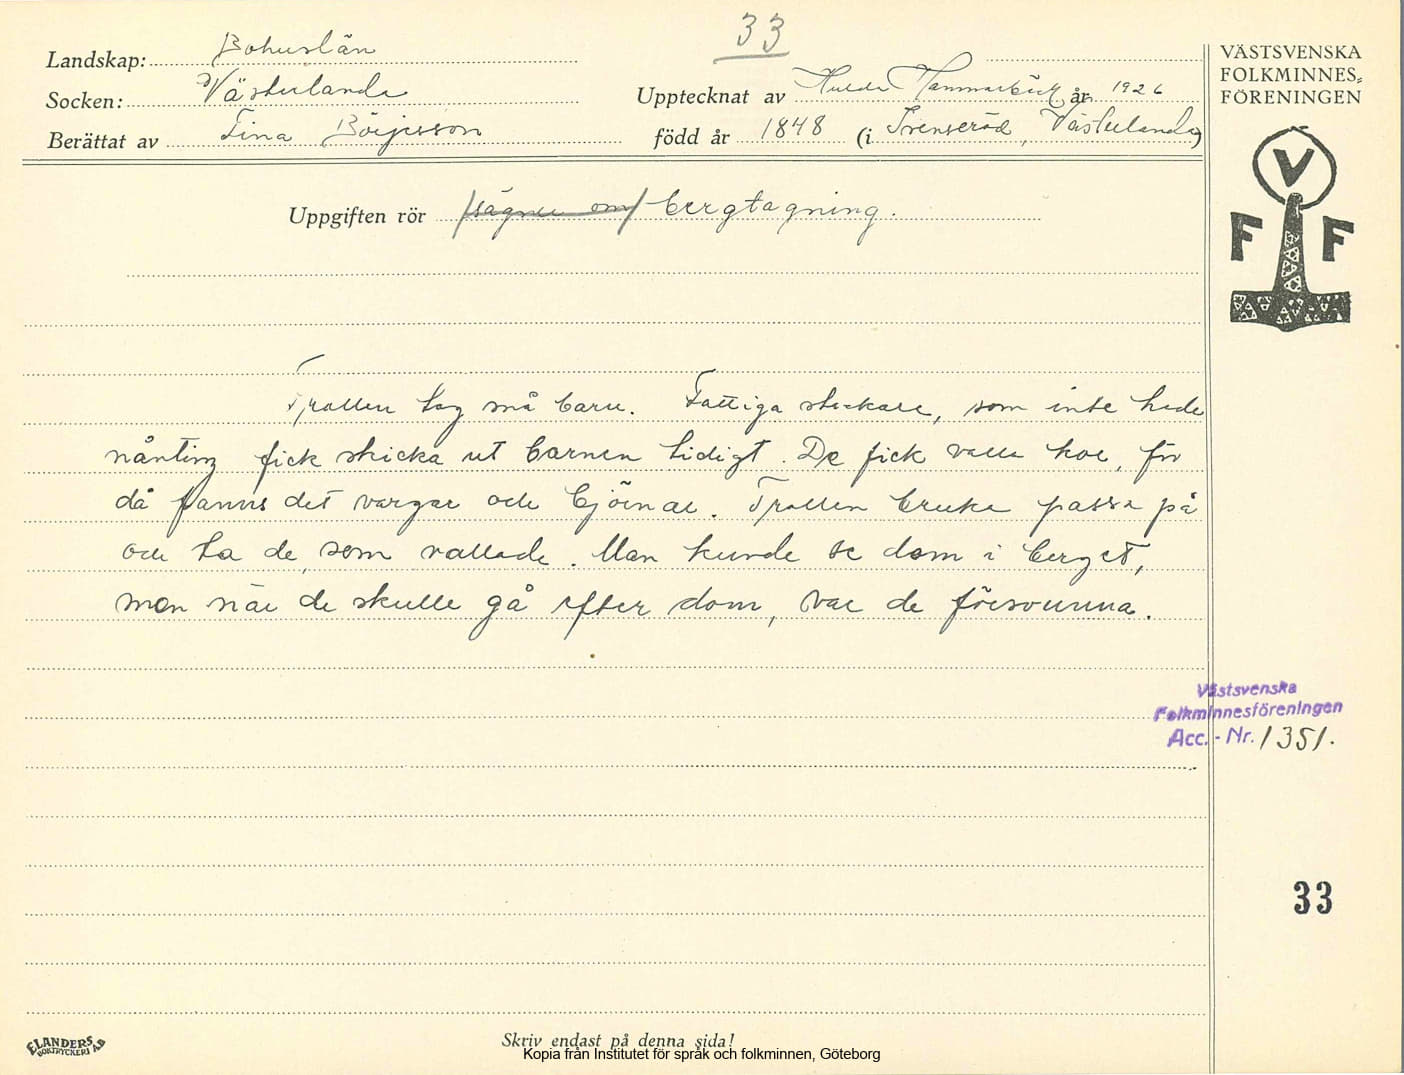 33
Landskap: Bohuslän
Socken: Västerlanda
Upptecknat av Hulda Hammarbäck år 1926
Berättat av Tina Börjesson
född år 1848 (i Svenseröd, Västerlanda)
VÄSTSVENSKA
FOLKMINNES-
FÖRENINGEN
V
F F
Uppgiften rör /sägner om/ bergtagning.
Trollen tog små barn. Fattiga stackare, som inte hade
nånting fick skicka ut barnen tidigt. De fick valla kor, för
då fanns det vargar och björnar. Trollen bruka passa på
och ta de, som vallade. Man kunde se dom i berget,
men när de skulle gå efter dom, var de försvunna.
Västsvenska
Folkminnesföreningen
Acc.-Nr. 1351.
33
Skriv endast på denna sida!
ELANDERS
BOKTRYCKERI AB
Kopia från Institutet för språk och folkminnen, Göteborg